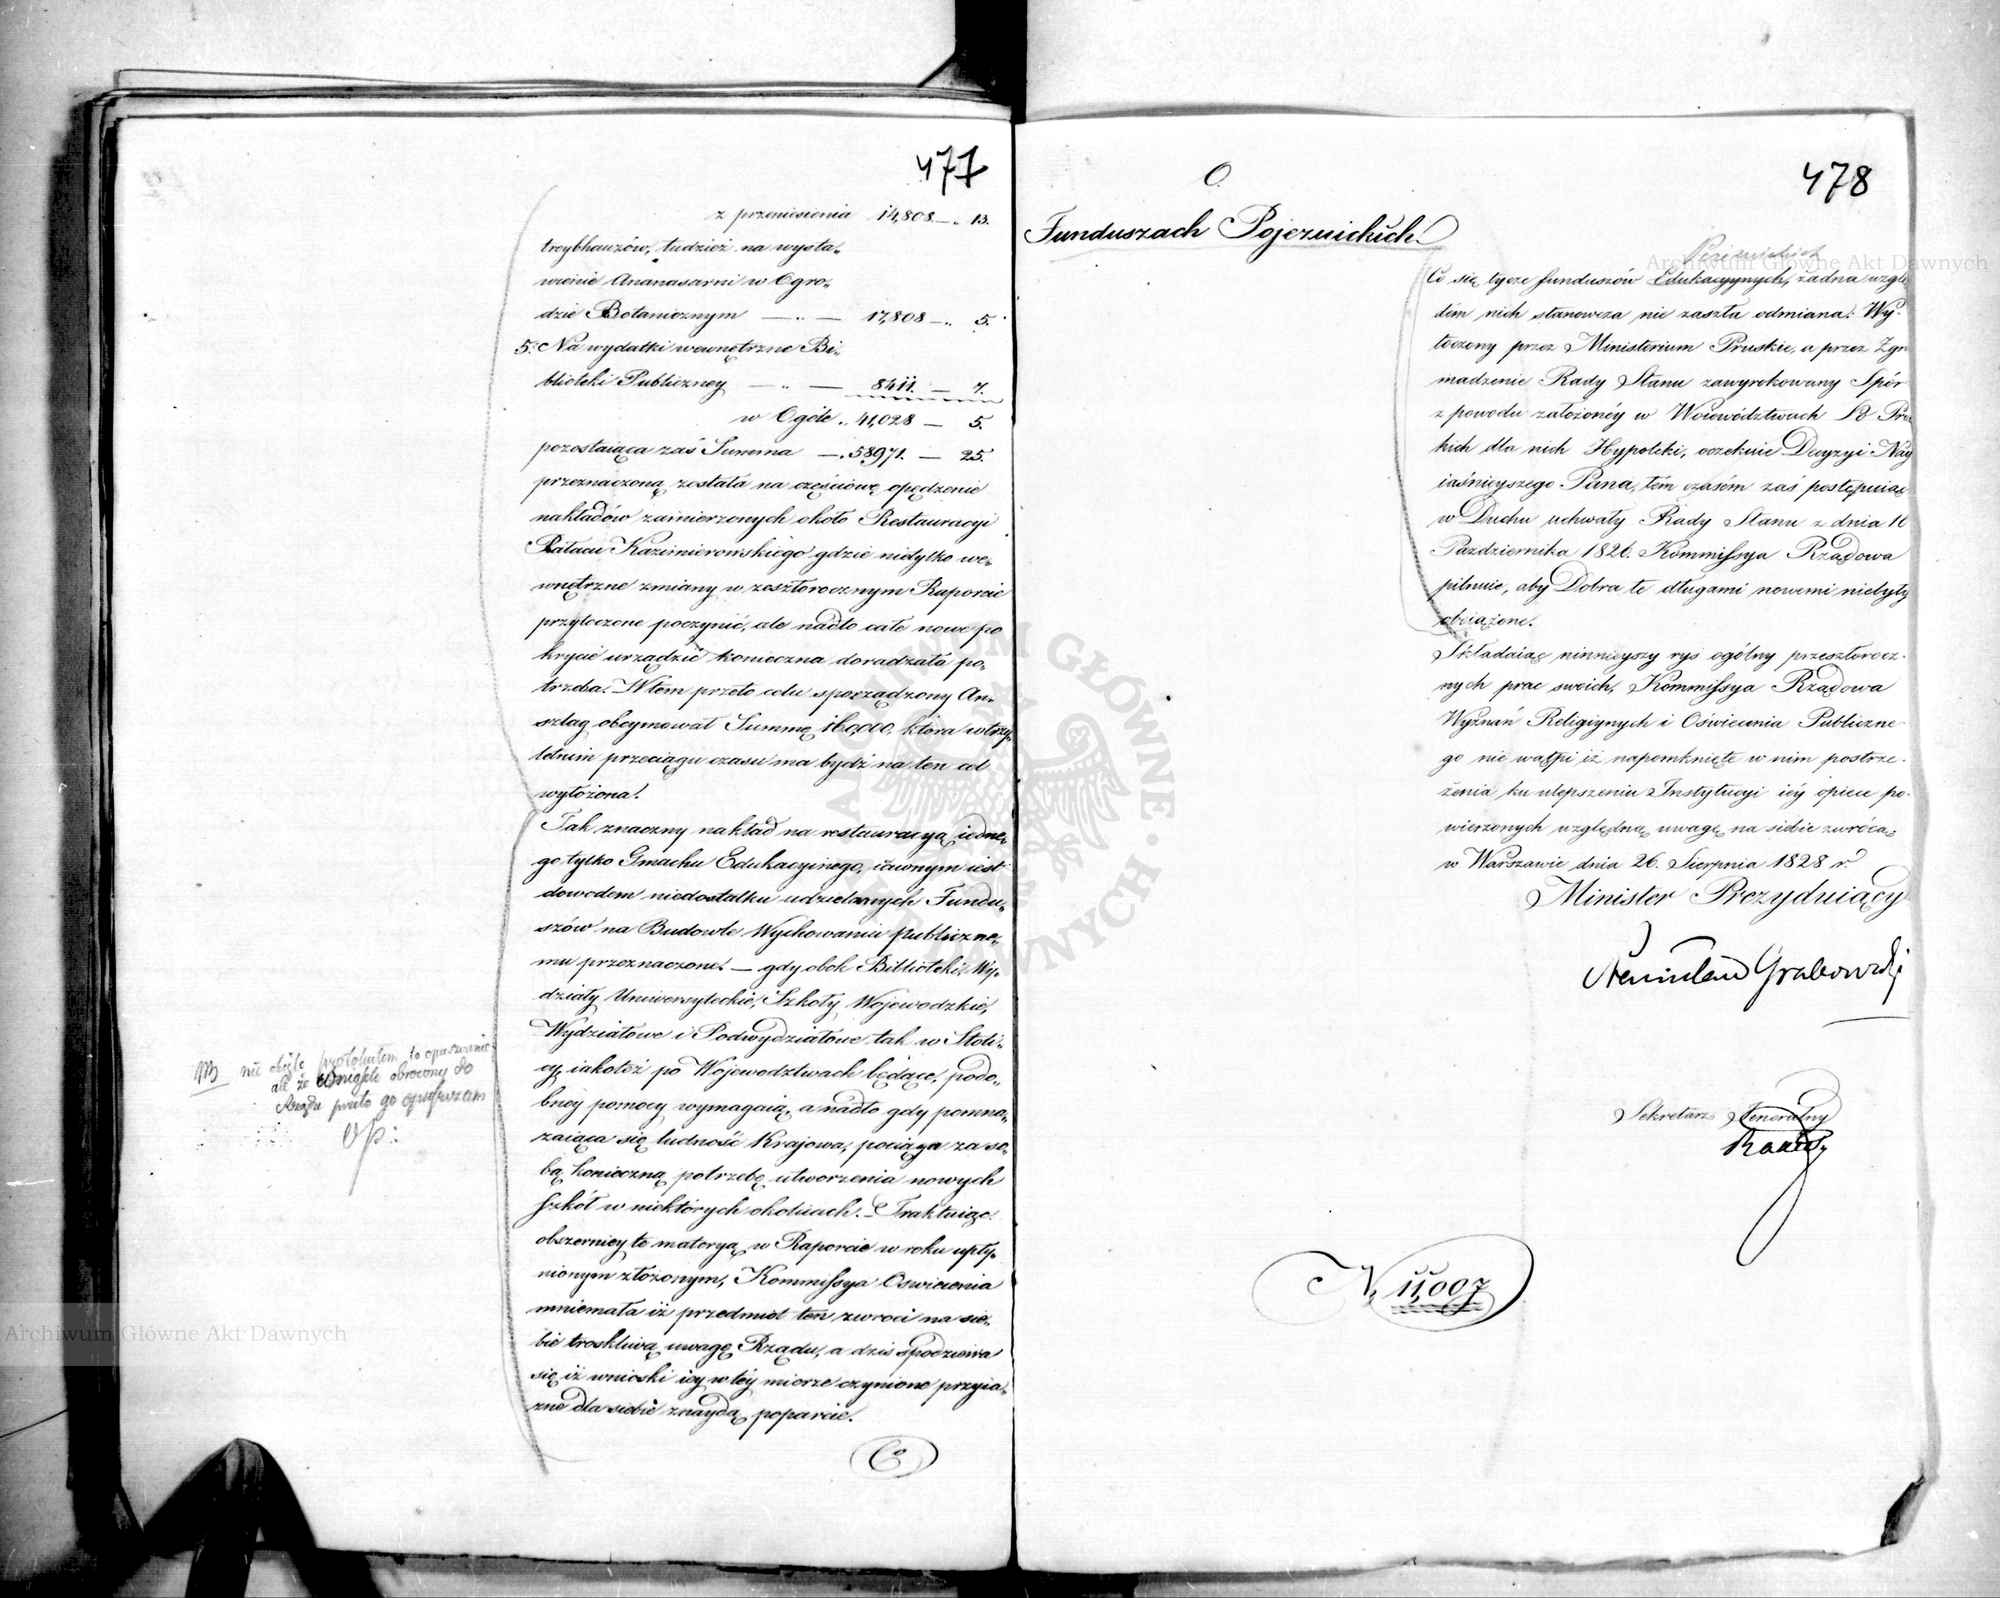 477
z przeniesienia 14,808 — „ 13.
treybhauzów, tudzież na wysta„
wienie Ananasarni w Ogro„
dzie Botanicznym — „ — 17,808 — „ 5.
5. Na wydatki wewnętrzne Bi„
blioteki Publiczney — „ — 8411. — 7.
w Ogóle „ 41,028 — 5.
pozostaiąca zaś Summa — „ 58971. — 25.
przeznaczoną została na częściowe opędzenie
nakładów zamierzonych około Restauracyi
Pałacu Kazimierowskiego gdzie nietylko we„
wnętrzne zmiany w zeszłorocznym Raporcie
przytoczone poczynić, ale nadto całe nowe po
krycie urządzić konieczna doradzała po„
trzeba. W tem przeto celu sporządzony An„
szlag obeymował Summę 160,000, która w trzy„
letnim przeciągu czasu ma bydź na ten cel
wyłożona.
Tak znaczny nakład na restauracyą iedne„
go tylko Gmachu Edukacyinego, iawnym iest
dowodem niedostatku udzielanych Fundu„
szów na Budowle Wychowaniu publiczne„
mu przeznaczone. — gdy obok Biblioteki, Wy„
działy Uniwersyteckie, Szkoły Wojewodzkie,
Wydziałowe i Podwydziałowe tak w Stoli„
cy, iakoteż po Wojewodztwach będące, podo„
bney pomocy wymagaią, a nadto gdy pomna„
żaiąca się ludność Krajowa, pociąga za so„
bą konieczną potrzebę utworzenia nowych
szkół w niektórych okolicach. — Traktuiąc
obszerniey te materyą w Raporcie w roku upły„
nionym złożonym, Kommissya Oswiecenia
mniemała iż przedmiot ten zwroci na sie„
bie troskliwą uwagę Rządu, a dziś spodziewa
się iż wnioski iey w téy mierze czynione przyia„
zne dla siebie znaydą poparcie.
Co
NB nie objęte protokułem to opuszczenie
ale że obrocony do
Rządu przeto go
478
O
Funduszach Pojezuickich.
Pojezuickich
Co się tycze funduszów Edukacyynych, żadna wzglę
dem nich stanowcza nie zaszła odmiana. Wy„
toczony przez Ministerium Pruskie, a przez Zgro
madzenie Rady Stanu zawyrokowany Spór
z powodu założonéy w Woiewództwach b. Prus
kich dla nich Hypoteki, oczekuie Decyzyi Nay
iaśnieyszego Pana, tém czasém zaś postępuiąc
w Duchu uchwały Rady Stanu z dnia 10
Pazdziernika 1826. Kommissya Rządowa
pilnuie, aby Dobra te długami nowemi niebyły
obciążone.
Składaiąc ninnieyszy rys ogólny przeszłorocz„
nych prac swoich, Kommissya Rządowa
Wyznań Religiynych i Oświecenia Publiczne„
go nie wątpi iż napomknięte w nim postrze„
żenia ku ulepszeniu Instytucyi iéy opiece po„
wierzonych względną uwagę na siebie zwrócą.
w Warszawie dnia 26. Sierpnia 1828 r.
Minister Prezyduiący
Stanisław Grabowski
Sekretarz Jeneralny
N. 11,007
Archiwum Główne Akt Dawnych
Archiwum Główne Akt Dawnych
ARCHIWUM GŁÓWNE AKT DAWNYCH